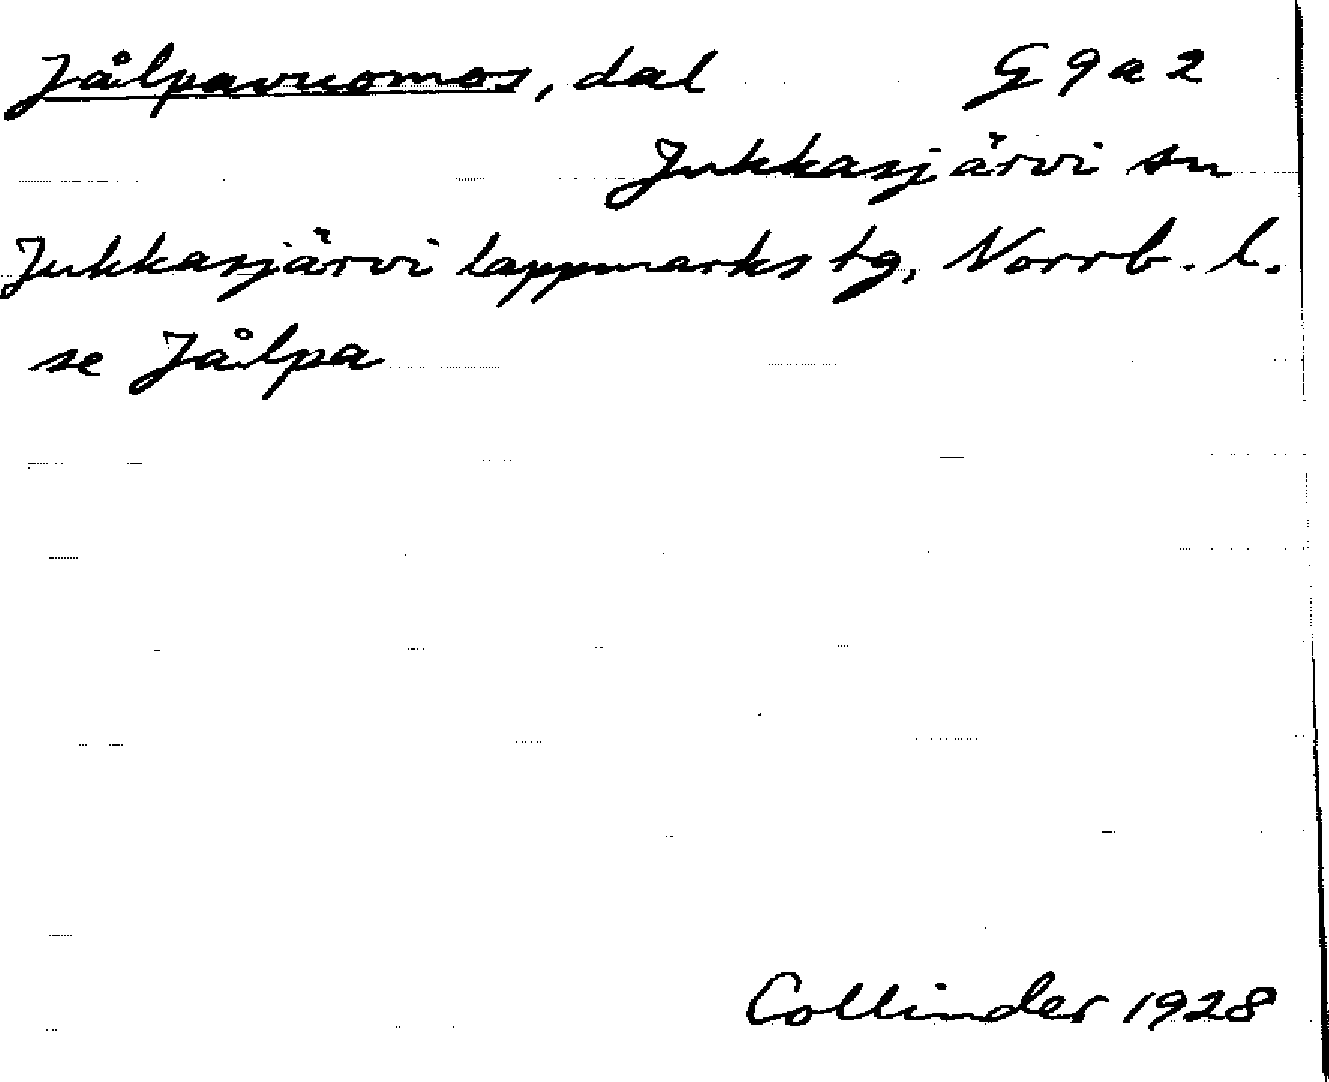 Jålpavuomos, dal G 9 a 2
Jukkasjärvi sn
Jukkasjärvi lappmarks tg, Norrb. l.
se Jålpa
Collinder 1928